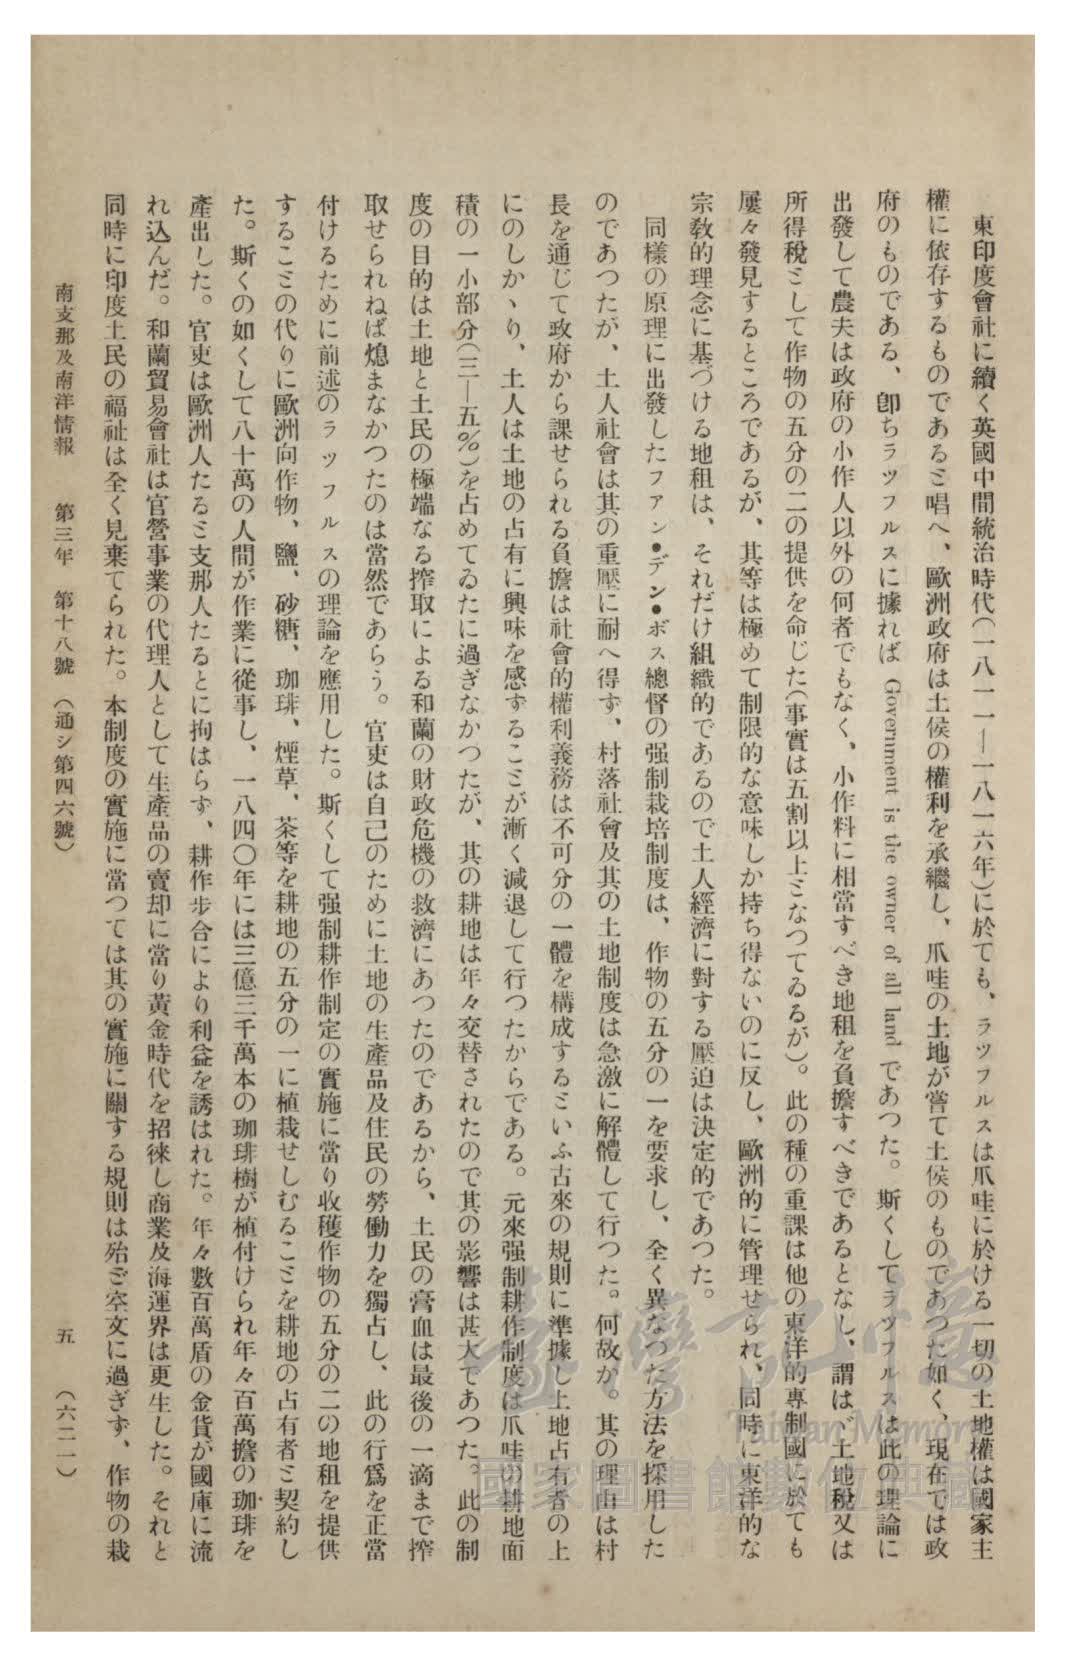 東印度會社に續く英國中間統治時代(一八一一―一八一六年)に於ても、ラツフルスは爪哇に於ける一切の土地權は國家主
權に依存するものであるミ唱へ、歐洲政府は土侯の權利を承繼し、爪哇の土地が嘗て土侯のものであつた如く、現在では政
府のものである、卽ちラツフルスに據れば Government is the owner of all land であつた。斯くしてラツフルスは此の理論に
出發して農夫は政府の小作人以外の何者でもなく、小作料に相當すべき地租を負擔すべきであるとなし、謂はゞ土地稅又は
所得稅ミして作物の五分の二の提供を命じた(事實は五割以上ミなつてゐるが)。此の種の重課は他の東洋的專制國に於ても
屢々發見するところであるが、其等は極めて制限的な意味しか持ち得ないのに反し、歐洲的に管理せられ、同時に東洋的な
宗敎的理念に基づける地租は、それだけ組織的であるので土人經濟に對する壓迫は決定的であつた。
同樣の原理に出發したファン•デン•ボス總督の强制栽培制度は、作物の五分の一を要求し、全く異なつた方法を採用した
のであつたが、土人社會は其の重壓に耐へ得ず、村落社會及其の土地制度は急激に解體して行つた。何故か。其の理由は村
長を通じて政府から課せられる負擔は社會的權利義務は不可分の一體を構成するミいふ古來の規則に準據し土地占有者の上
にのしかゝり、土人は土地の占有に興味を感ずるこミが漸く減退して行つたからである。元來强制耕作制度は爪哇の耕地面
積の一小部分(三―五%)を占めてゐたに過ぎなかつたが、其の耕地は年々交替されたので其の影響は甚大であつた。此の制
度の目的は土地と土民の極端なる搾取による和蘭の財政危機の救濟にあつたのであるから、土民の膏血は最後の一滴まで搾
取せられねば熄まなかつたのは當然であらう。官吏は自己のために土地の生產品及住民の勞働力を獨占し、此の行爲を正當
付けるために前述のラツフルスの理論を應用した。斯くして强制耕作制定の實施に當り收穫作物の五分の二の地租を提供
するこミの代りに歐洲向作物、鹽、砂糖、珈琲、煙草、茶等を耕地の五分の一に植栽せしむるこミを耕地の占有者ミ契約し
た。斯くの如くして八十萬の人間が作業に從事し、一八四〇年には三億三千萬本の珈琲樹が植付けられ年々百萬擔の珈琲を
產出した。官吏は歐洲人たるミ支那人たるとに拘はらず、耕作步合により利益を誘はれた。年々數百萬盾の金貨が國庫に流
れ込んだ。和蘭貿易會社は官營事業の代理人として生產品の賣却に當り黃金時代を招徠し商業及海運界は更生した。それと
同時に印度土民の福祉は全く見棄てられた。本制度の實施に當つては其の實施に關する規則は殆ご空文に過ぎず、作物の栽
南支那及南洋情報 第三年 第十八號 (通シ第四六號) 五 (六二一)
臺灣記憶
Taiwan Memory
國家圖書館數位典藏